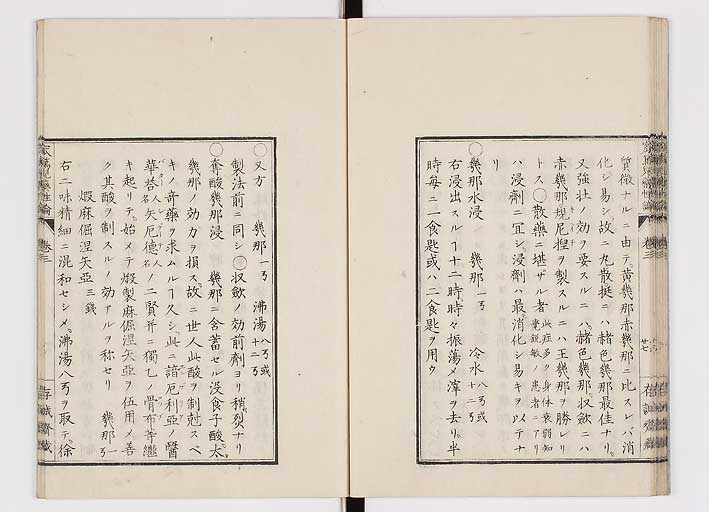 質微ナルニ由テ黄幾那赤幾那ニ比スレバ消
化シ易シ故ニ丸散挺ニハ赭色幾那最佳ナリ
又強壮ノ効ヲ要スルニハ赭色幾那収歛ニハ
赤幾那規尼捏ヲ製スルニハ王幾那ヲ勝レリ
トス○散藥ニ堪ザル者此症多ク身体衰弱知覺鋭敏ノ患者ニアリ
ハ浸劑ニ冝シ浸劑ハ最消化シ易キヲ以テナ
リ
○幾那水浸 幾那一ヲ 冷水八ヲ或十二ヲ
右浸出スルヿ十二時時々振蕩メ滓ヲ去リ半
時每ニ一食匙或ハ二食匙ヲ用ウ
卷三
存誠齋藏
○又方 幾那一ヲ 沸湯八ヲ或十二ヲ
製法前ニ同シ○収歛ノ効前劑ヨリ稍烈ナリ
○奪酸幾那浸 幾那ニ含蓄セル浸食子酸太
幾那ノ効力ヲ損ス故ニ世人此酸ヲ制尅スベ
キノ奇藥ヲ求ムルヿ久シ此ニ諳厄利亞ノ醫
華荅人名矢厄德人名ノ二賢并ニ獨乙ノ骨布等繼
キ起リテ始メテ煆製麻倔涅矢亞ヲ伍用メ善
ク其酸ヲ制スルノ効アルヲ称セリ 幾那ヲ一
煆麻倔涅矢亞三錢
右二味精細ニ混和セシメ沸湯八ヲヲ取テ徐
卷三
存誠齋藏